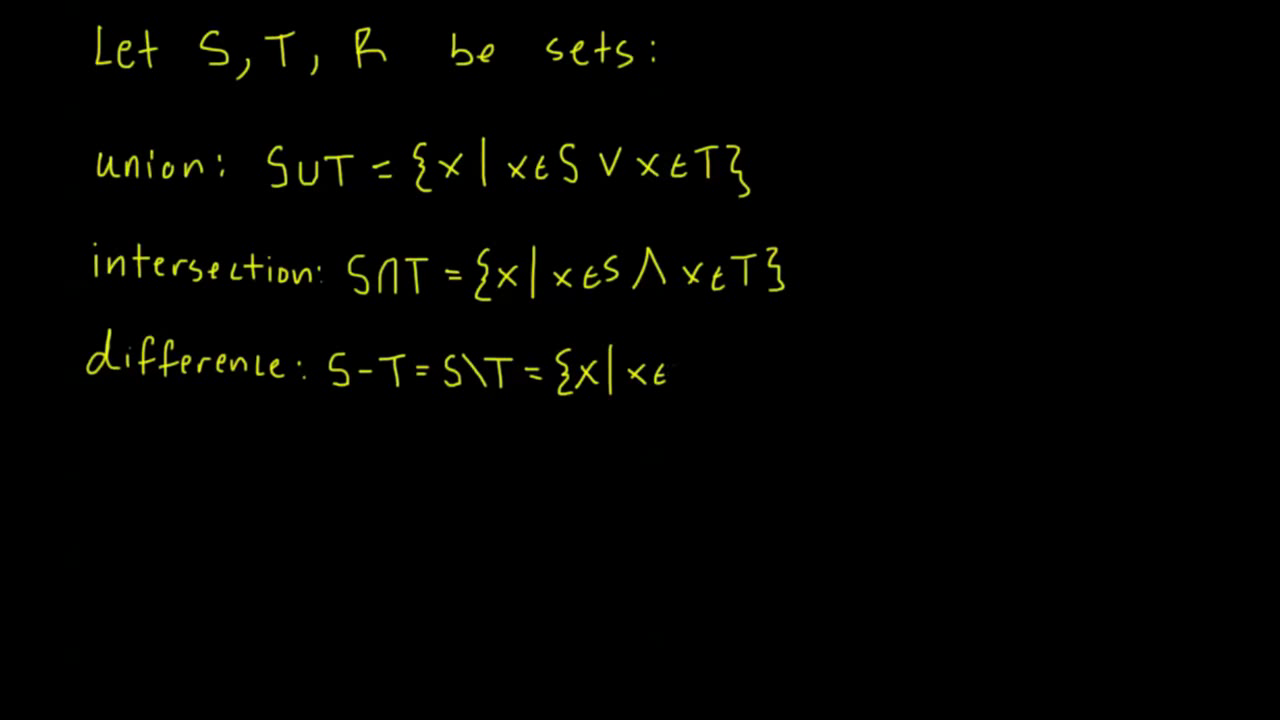 Let S, T, R be sets:
union: S∪T = {x | x∈S ∨ x∈T}
intersection: S∩T = {x | x∈S ∧ x∈T}
difference: S-T = S\T = {x | x∈